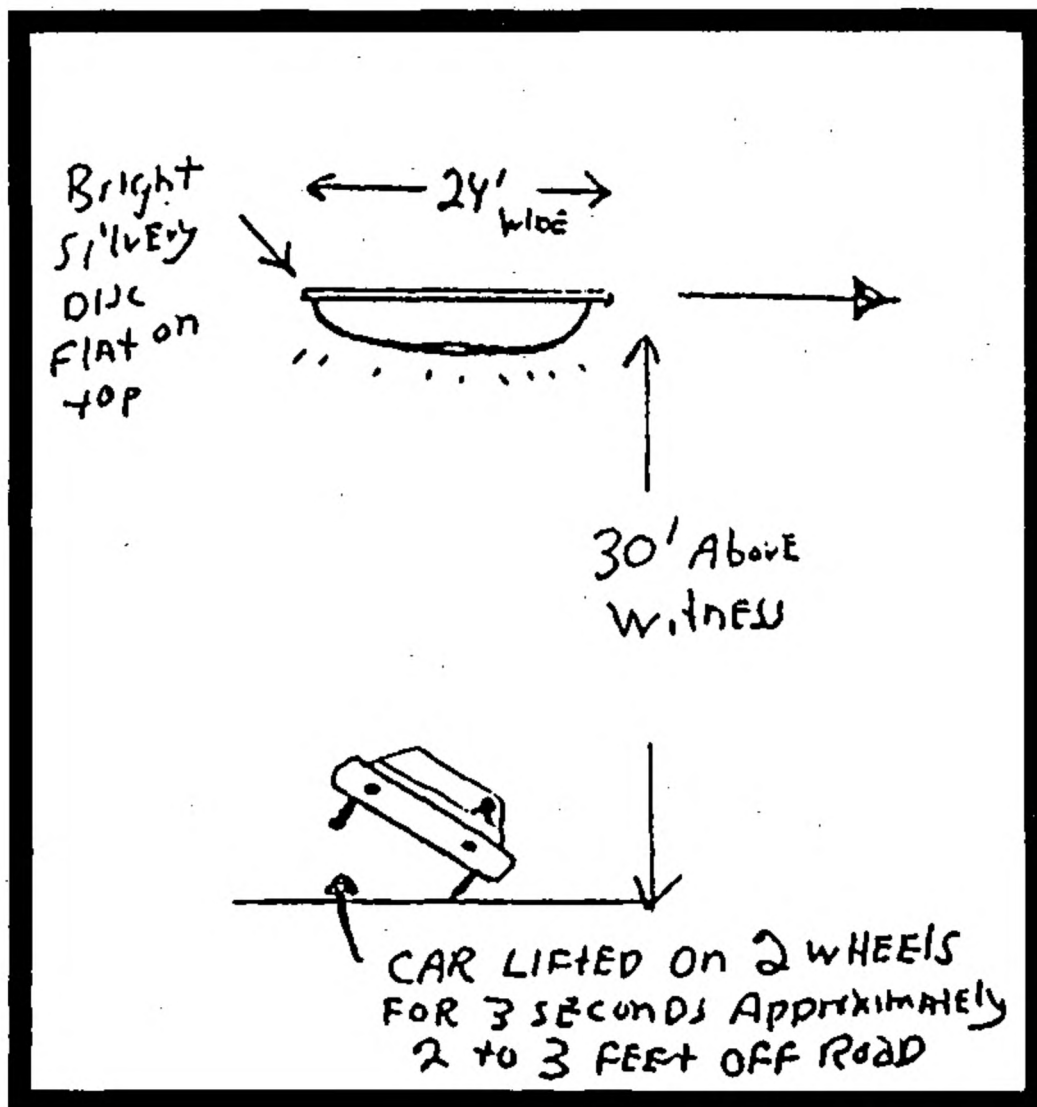 Bright
SilvEry
DISC
FlAt on
top
24'
WIDE
30' AbovE
WitnESS
CAR LIFtED On 2 WHEElS
FOR 3 SEConDS ApproximAtEly
2 to 3 FEEt OFF RoAD